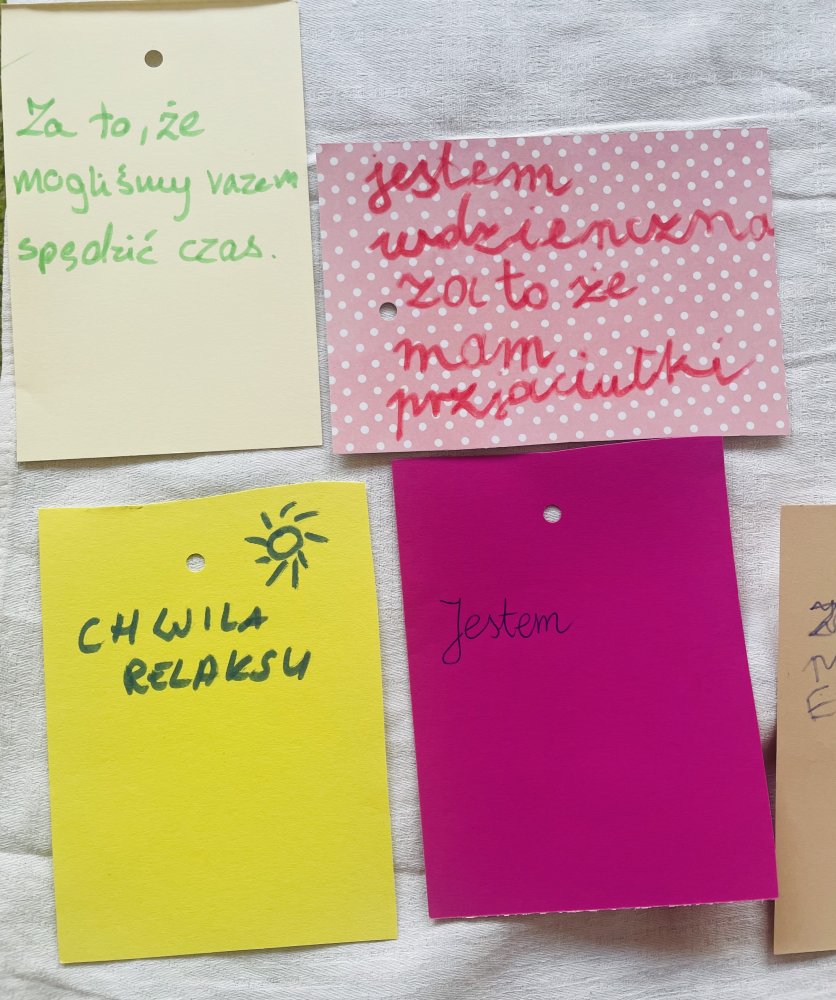 Za to, że
mogliśmy razem
spędzić czas.
jestem
wdzienczna
za to że
mam
przjaciułki
CHWILA
RELAKSU
Jestem